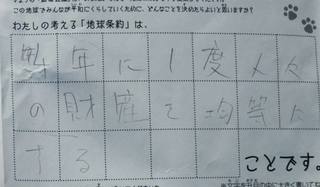 この地球でみんなが平和にくらしていくために、どんなことを決めたらよいと思いますか?
わたしの考える「地球条約」は、
数年に1度人々
の財産を均等に
する
ことです。